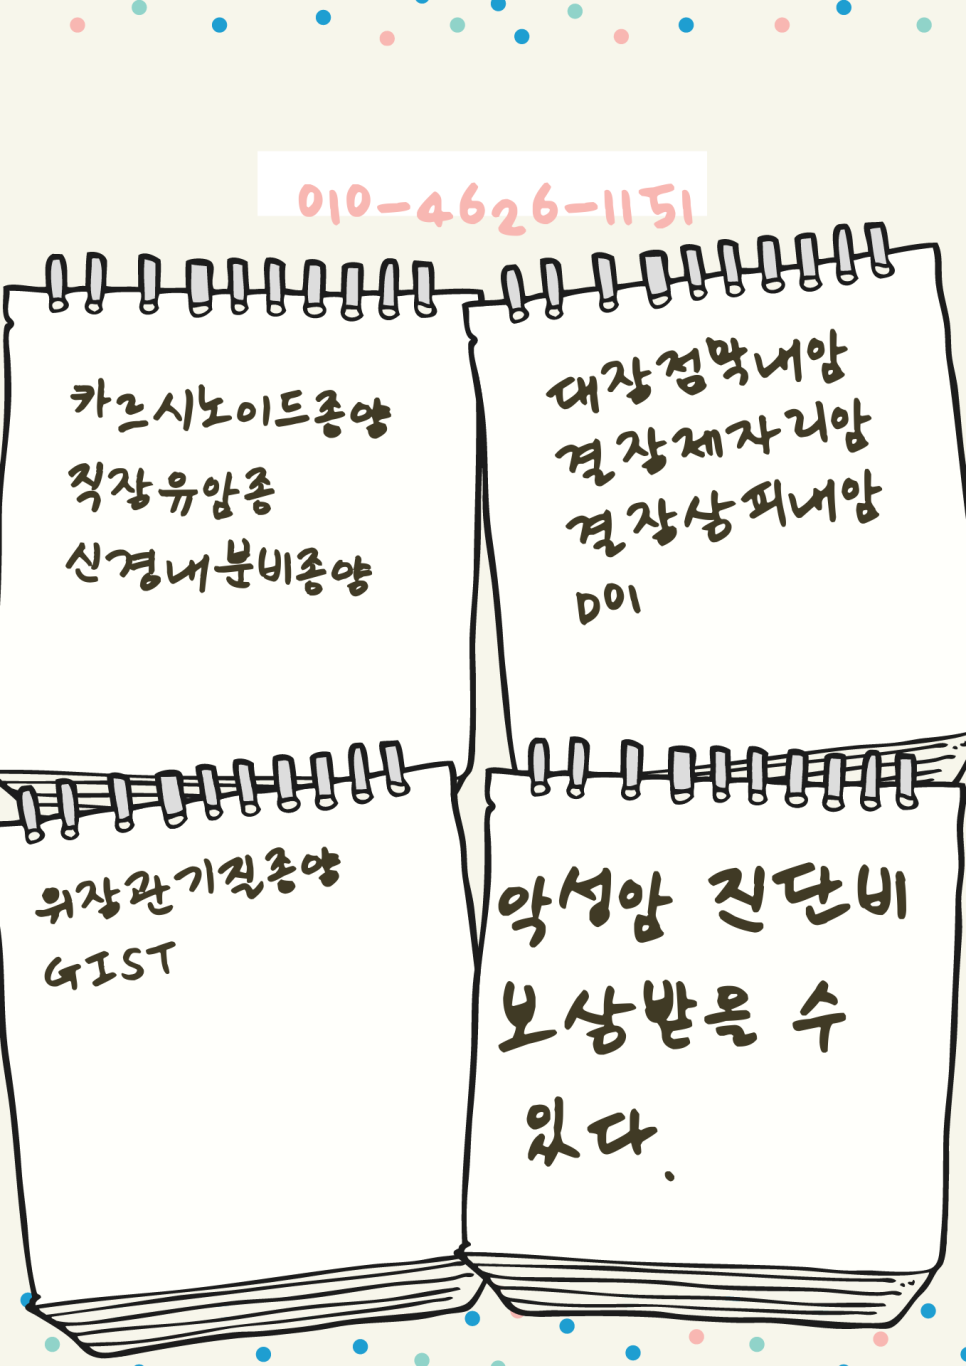 010-4626-1151
카르시노이드종양
직장유암종
신경내분비종양
대장점막내암
결장제자리암
결장상피내암
D01
위장관기질종양
GIST
악성암 진단비
보상받을 수
있다.